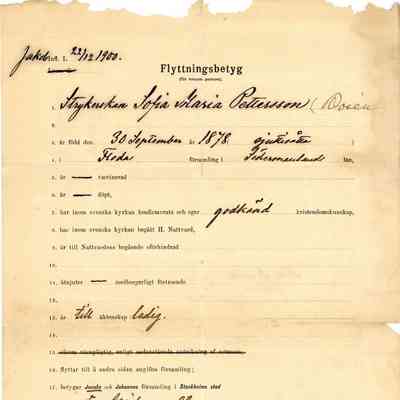 Jakob Inft. L. 22/12 1900.
Flyttningsbetyg
(för ensam person).
1. Strykerskan Sofia Maria Pettersson (Rosén
2.
3. är född den 30 September år 1878 sjuttioåtta
4. i Floda församling i Södermanlands län,
5. är — vaccinerad
6. är — döpt,
7. har inom svenska kyrkan konfirmerats och eger godkänd kristendomskunskap,
8. har inom svenska kyrkan begått H. Nattvard,
9. är till Nattvardens begående oförhindrad
10.
11. åtnjuter — medborgerligt förtroende
12.
13. är till äktenskap ledig.
14.
15.
16. flyttar till å andra sidan angifna församling;
17. betygar Jacobs och Johannes församling i Stockholms stad